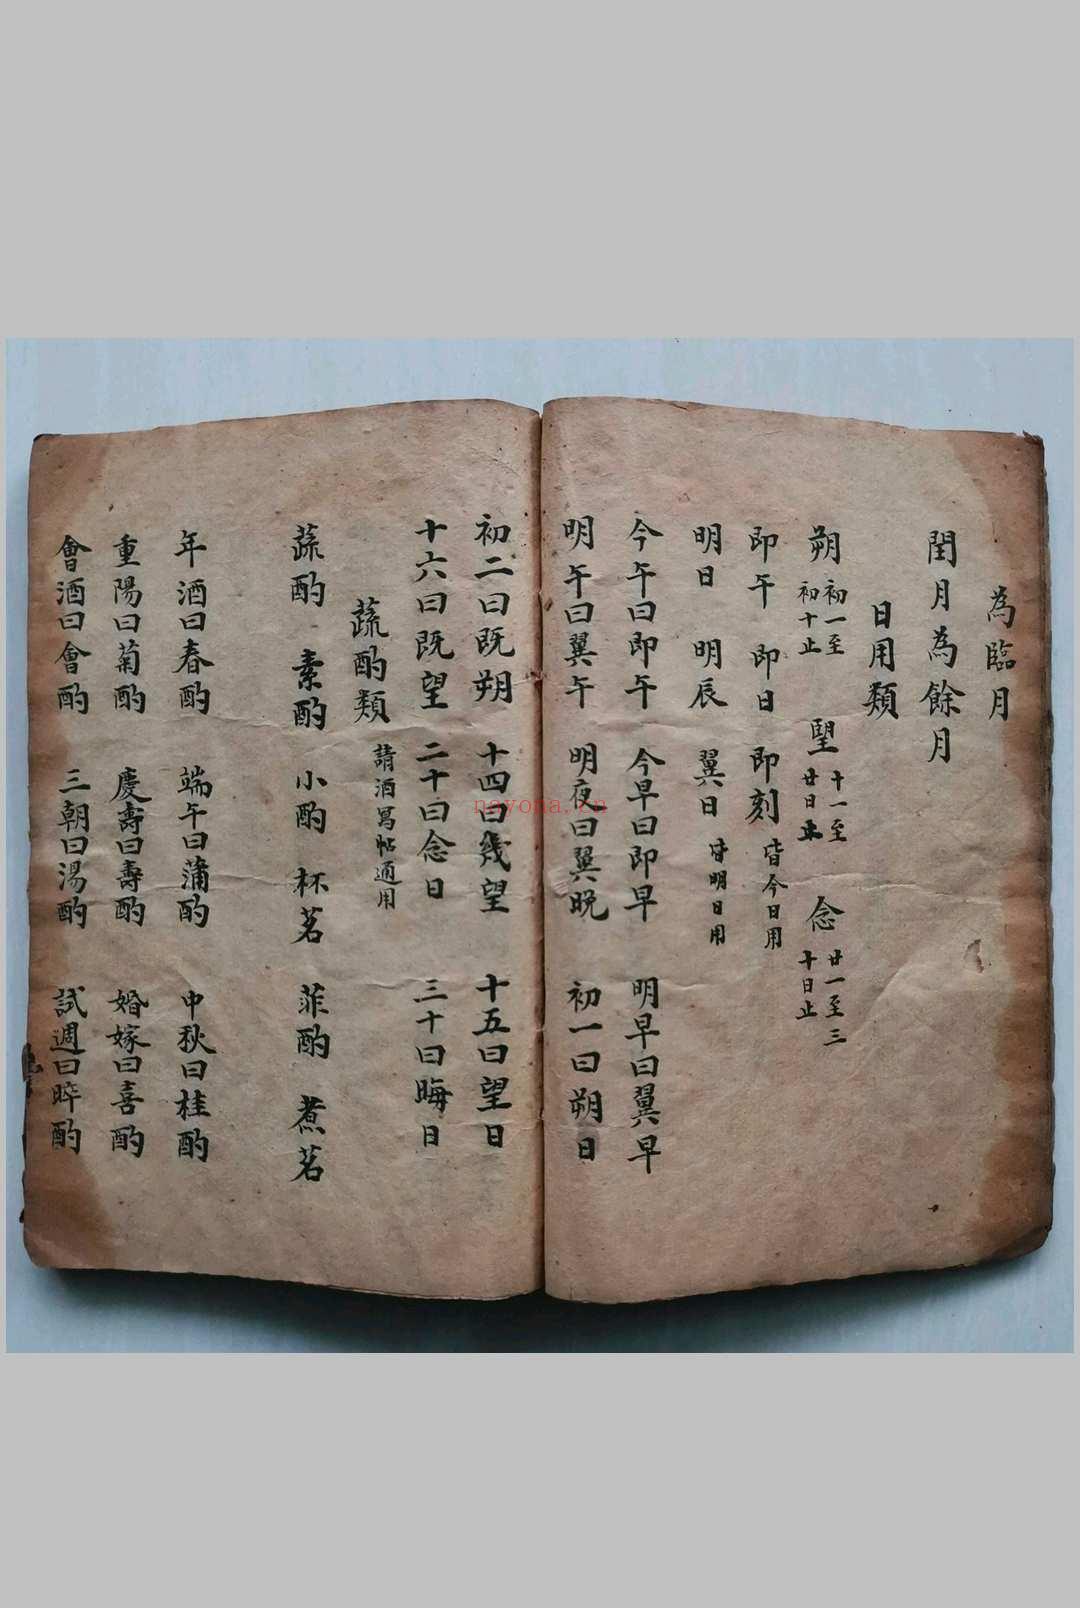 為臨月
閏月為餘月
日用類
朔 初一至初十止 望 十一至廿日止 念 廿一至三十日止
即午 即日 即刻 皆今日用
明日 明辰 翼日 皆明日用
今午曰即午 今早曰即早 明早曰翼早
明午曰翼午 明夜曰翼晚 初一曰朔日
初二曰既朔 十四曰幾望 十五曰望日
十六曰既望 二十曰念日 三十曰晦日
蔬酌類 請酒寫帖通用
蔬酌 素酌 小酌 杯茗 菲酌 煮茗
年酒曰春酌 端午曰蒲酌 中秋曰桂酌
重陽曰菊酌 慶壽曰壽酌 婚嫁曰喜酌
會酒曰會酌 三朝曰湯酌 試週曰晬酌
nayona.cn